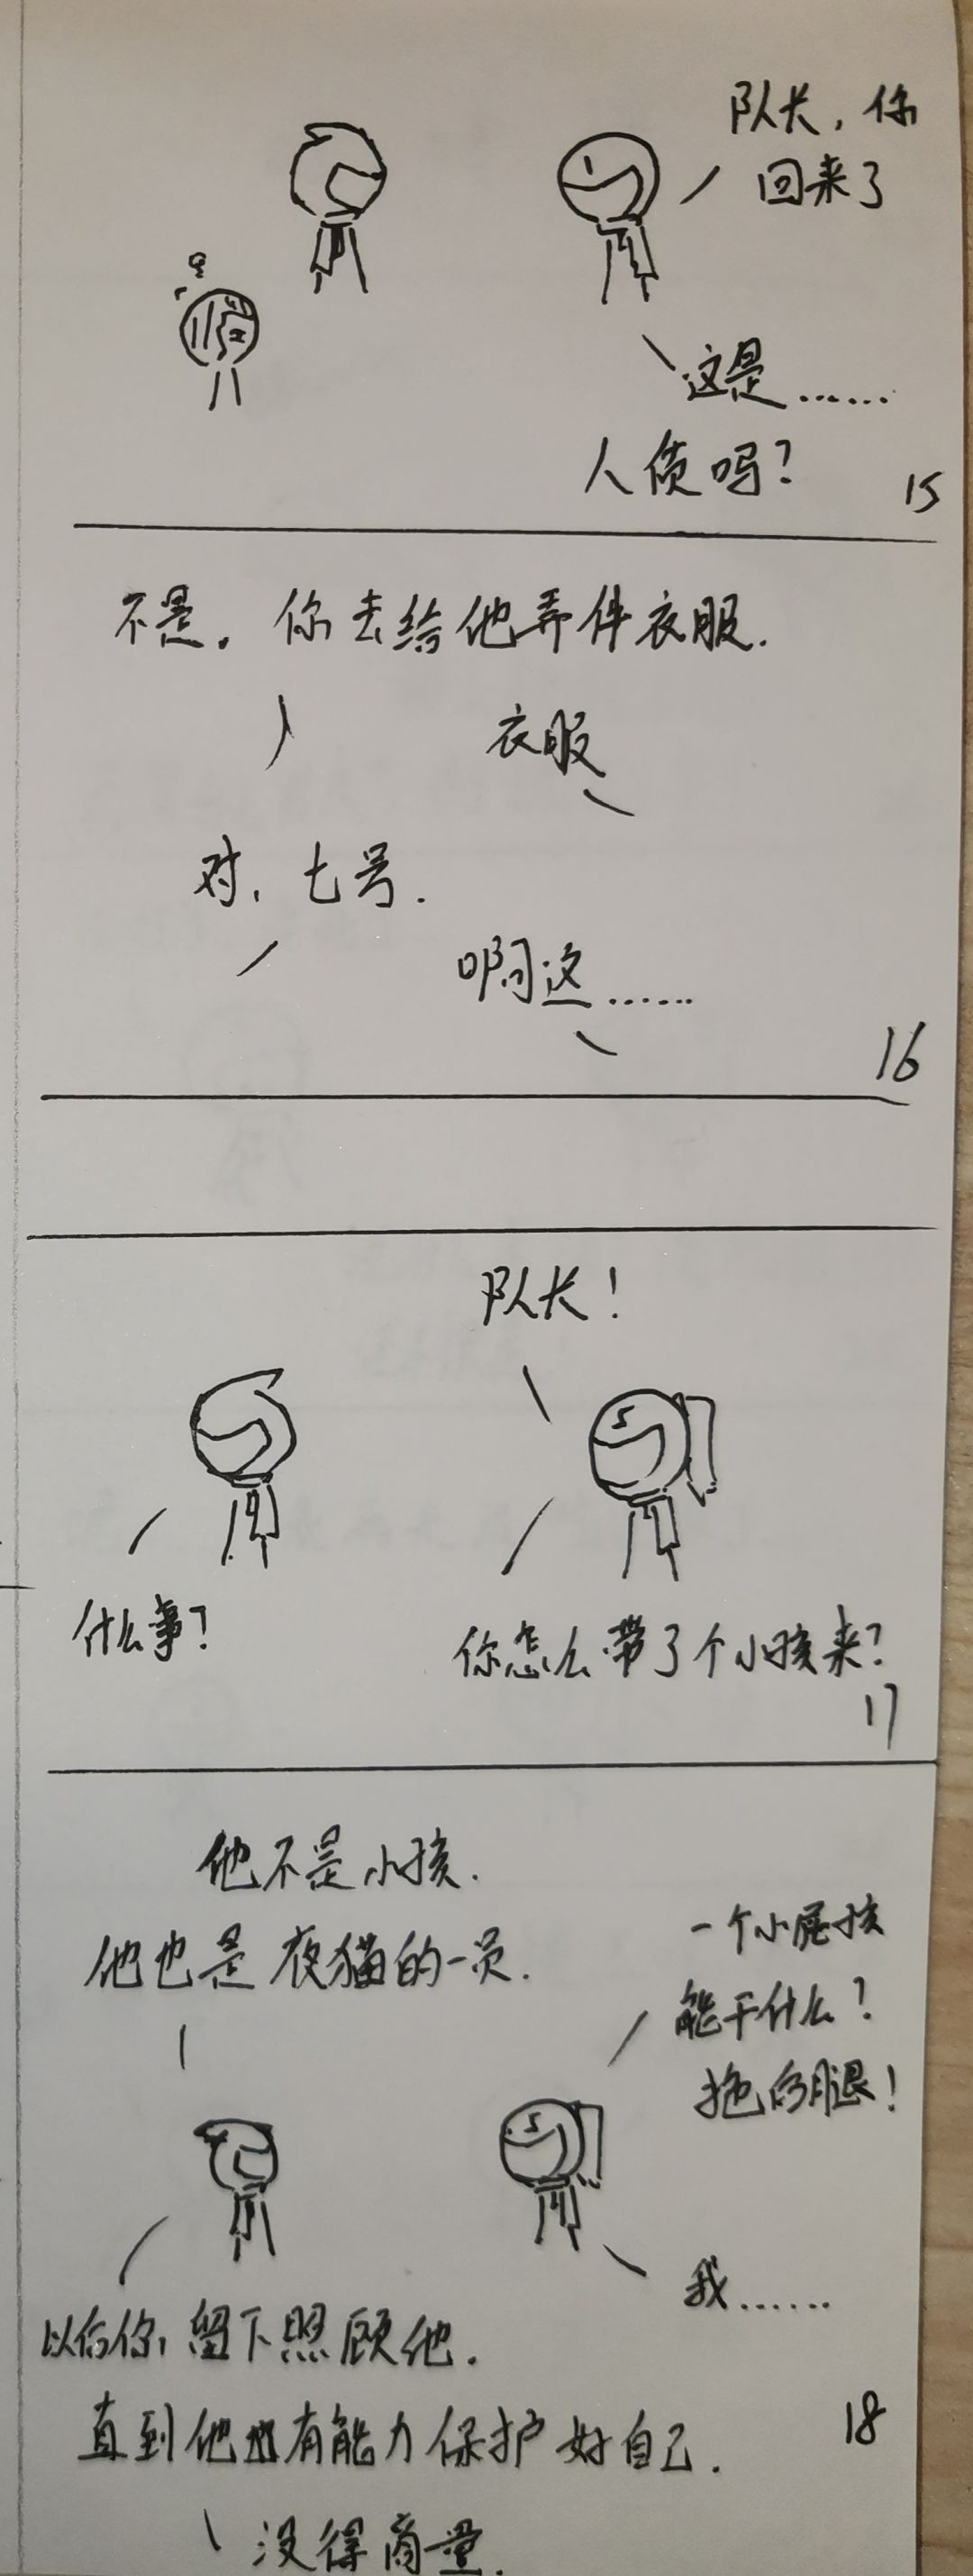 队长，你
回来了
这是……
人质吗？
15
不是。你去给他弄件衣服.
衣服
对，七号.
啊这……
16
队长！
什么事？
你怎么带了个小孩来？
17
他不是小孩.
他也是夜猫的一员.
一个小屁孩
能干什么？
拖后腿！
我……
以后你留下照顾他.
直到他有能力保护好自己.
18
没得商量.